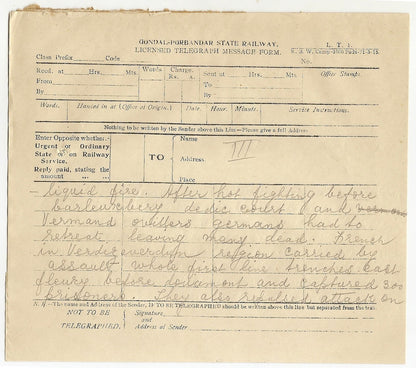 GONDAL-PORBANDAR STATE RAILWAY.
LICENSED TELEGRAPH MESSAGE FORM.
L. T. 1.
Class Prefix Code
No.
Recd. at Hrs. Mts.
From
By
Words
Charge.
Rs. a.
Sent at Hrs. Mts.
To
By
Office Stamp.
Words. Handed in at (Office of Origin). Date. Hour. Minuts. Service Instructions.
Nothing to be written by the Sender above this Line—Please give a full Address
Enter Opposite whether:-
Urgent or Ordinary
State or on Railway
Service.
Reply paid, stating the
amount
TO
Name
Address.
Place
III
liquid fire. After hot fighting before
court and
Vermand ovillers germans had to
retreat leaving many dead. French
in verdun region carried by
assault whole first line trenches east
fleury before and captured 300
prisoners. They also repulsed attack on
N. B.—The name and Address of the Sender, IF TO BE TELEGRAPHED should be written above this line but separated from the text.
NOT TO BE
TELEGRAPHED.
Signature
and
Address of Sender